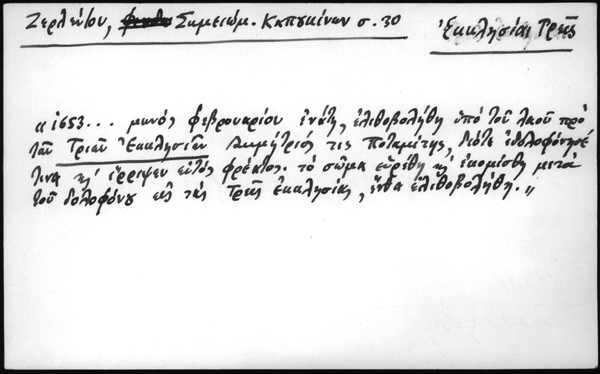 Ζερλέντου, Σημειώμ. Καπουκίνων σ. 30
Ἐκκλησίαι Τρεῖς
"1653... μηνός φεβρουαρίου ἐνάτῃ, ἐλιθοβολήθη ὑπό τοῦ λαοῦ πρό
τῶν Τριῶν Ἐκκλησιῶν Δημήτριός τις Ποταμίτης, διότι ἐδολοφόνησέ
τινα κ' ἔρριψεν ἐντός φρέατος. τό σῶμα εὑρέθη κ' ἐκομίσθη μετά
τοῦ δολοφόνου εἰς τάς Τρεῖς Ἐκκλησίας, ἔνθα ἐλιθοβολήθη."